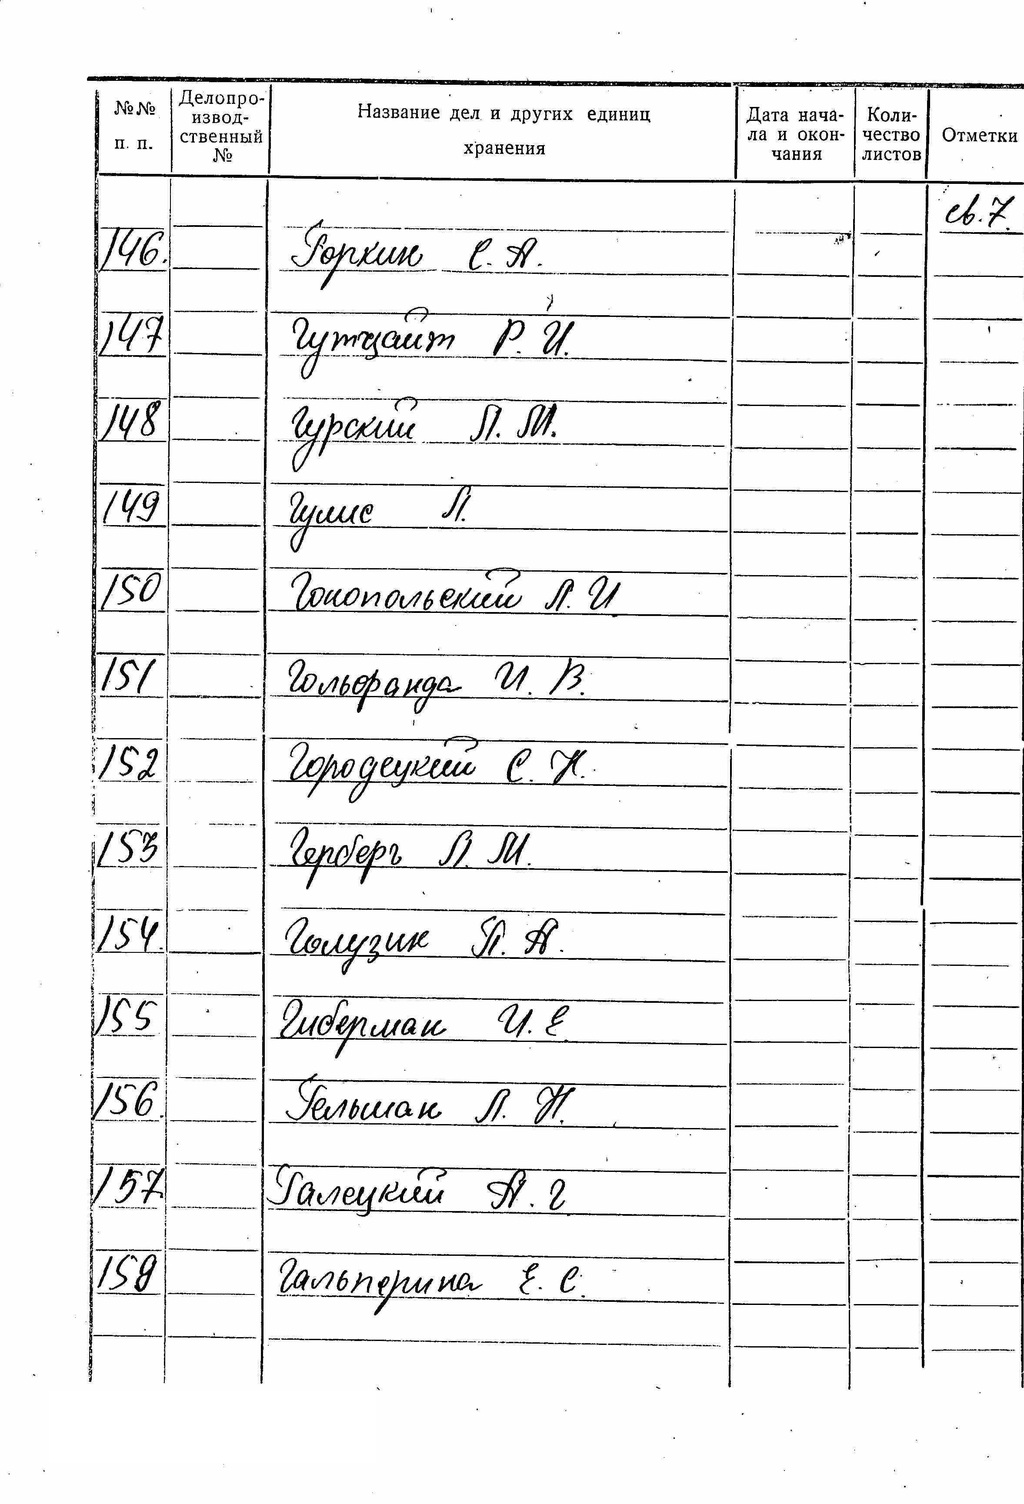 №№ п. п. Делопроизвод-ственный № Название дел и других единиц хранения Дата нача-ла и окон-чания Коли-чество листов Отметки
св. 7.
146. Горкин С. А.
147 Гутцайт Р. И.
148 Гурский Л. М.
149 Гулис Л.
150 Гонопольский Л. И
151 Гольфанда И. В.
152 Городецкий С. Н.
153 Герберг В. М.
154. Голузин П. А.
155 Гиберман И. Е.
156. Гельман Л. Н.
157 Галецкий А. Г
158 Гальперина Е. С.